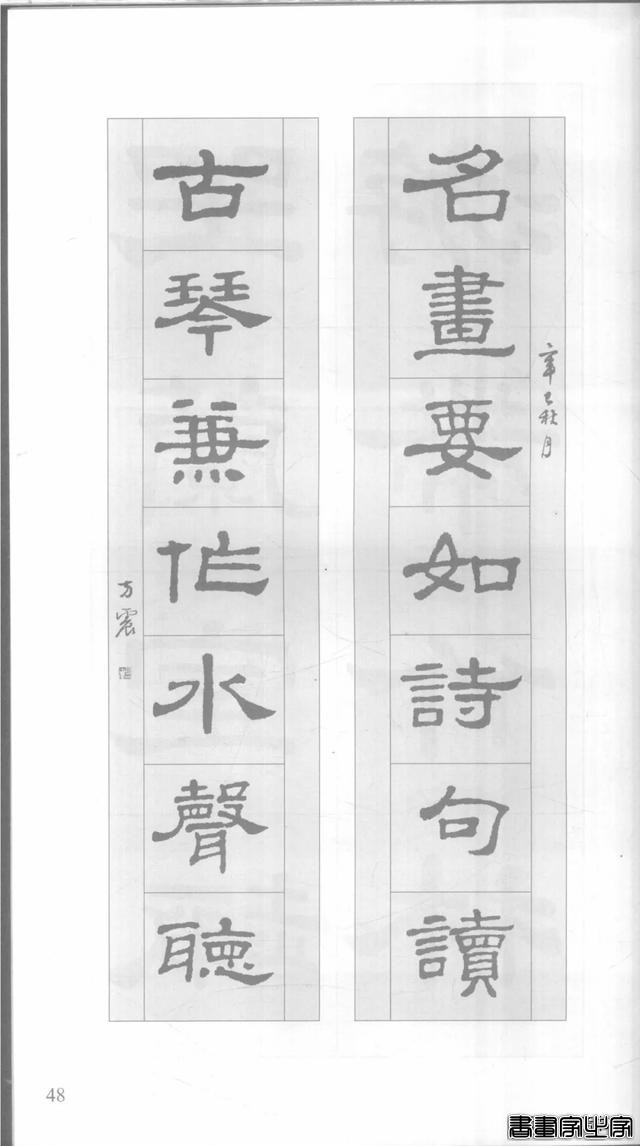 名畫要如詩句讀
辛巳秋月
古琴兼作水聲聽
方震
48
書畫家必家